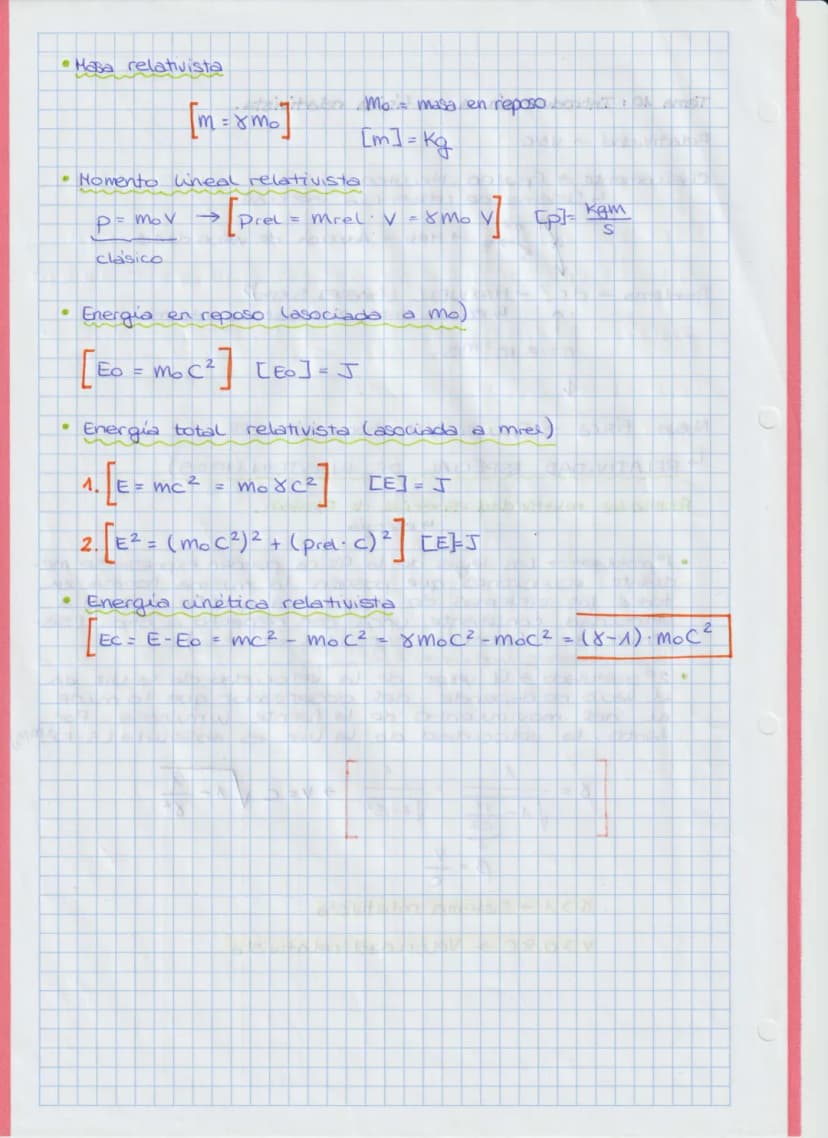 • Masa relativista
[m = γm₀] m₀ = masa en reposo
[m] = Kg
• Momento lineal relativista
p = m₀v → [prel = mrel · v = γm₀ v] [p] = kgm/s
clásico
• Energía en reposo (asociada a m₀)
[E₀ = m₀c²] [E₀] = J
• Energía total relativista (asociada a mrel)
1. [E = mc² = m₀γc²] [E] = J
2. [E² = (m₀c²)² + (prel · c)²] [E]=J
• Energía cinética relativista
[Ec = E - E₀ = mc² - m₀c² = γm₀c² - m₀c² = (γ-1) · m₀c²]